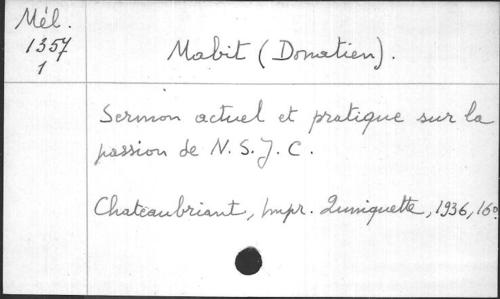 Mél.
1357
1
Mabit (Donatien).
Sermon actuel et pratique sur la
passion de N. S. J. C.
Chateaubriant, Impr. Quniquette, 1936, 16º